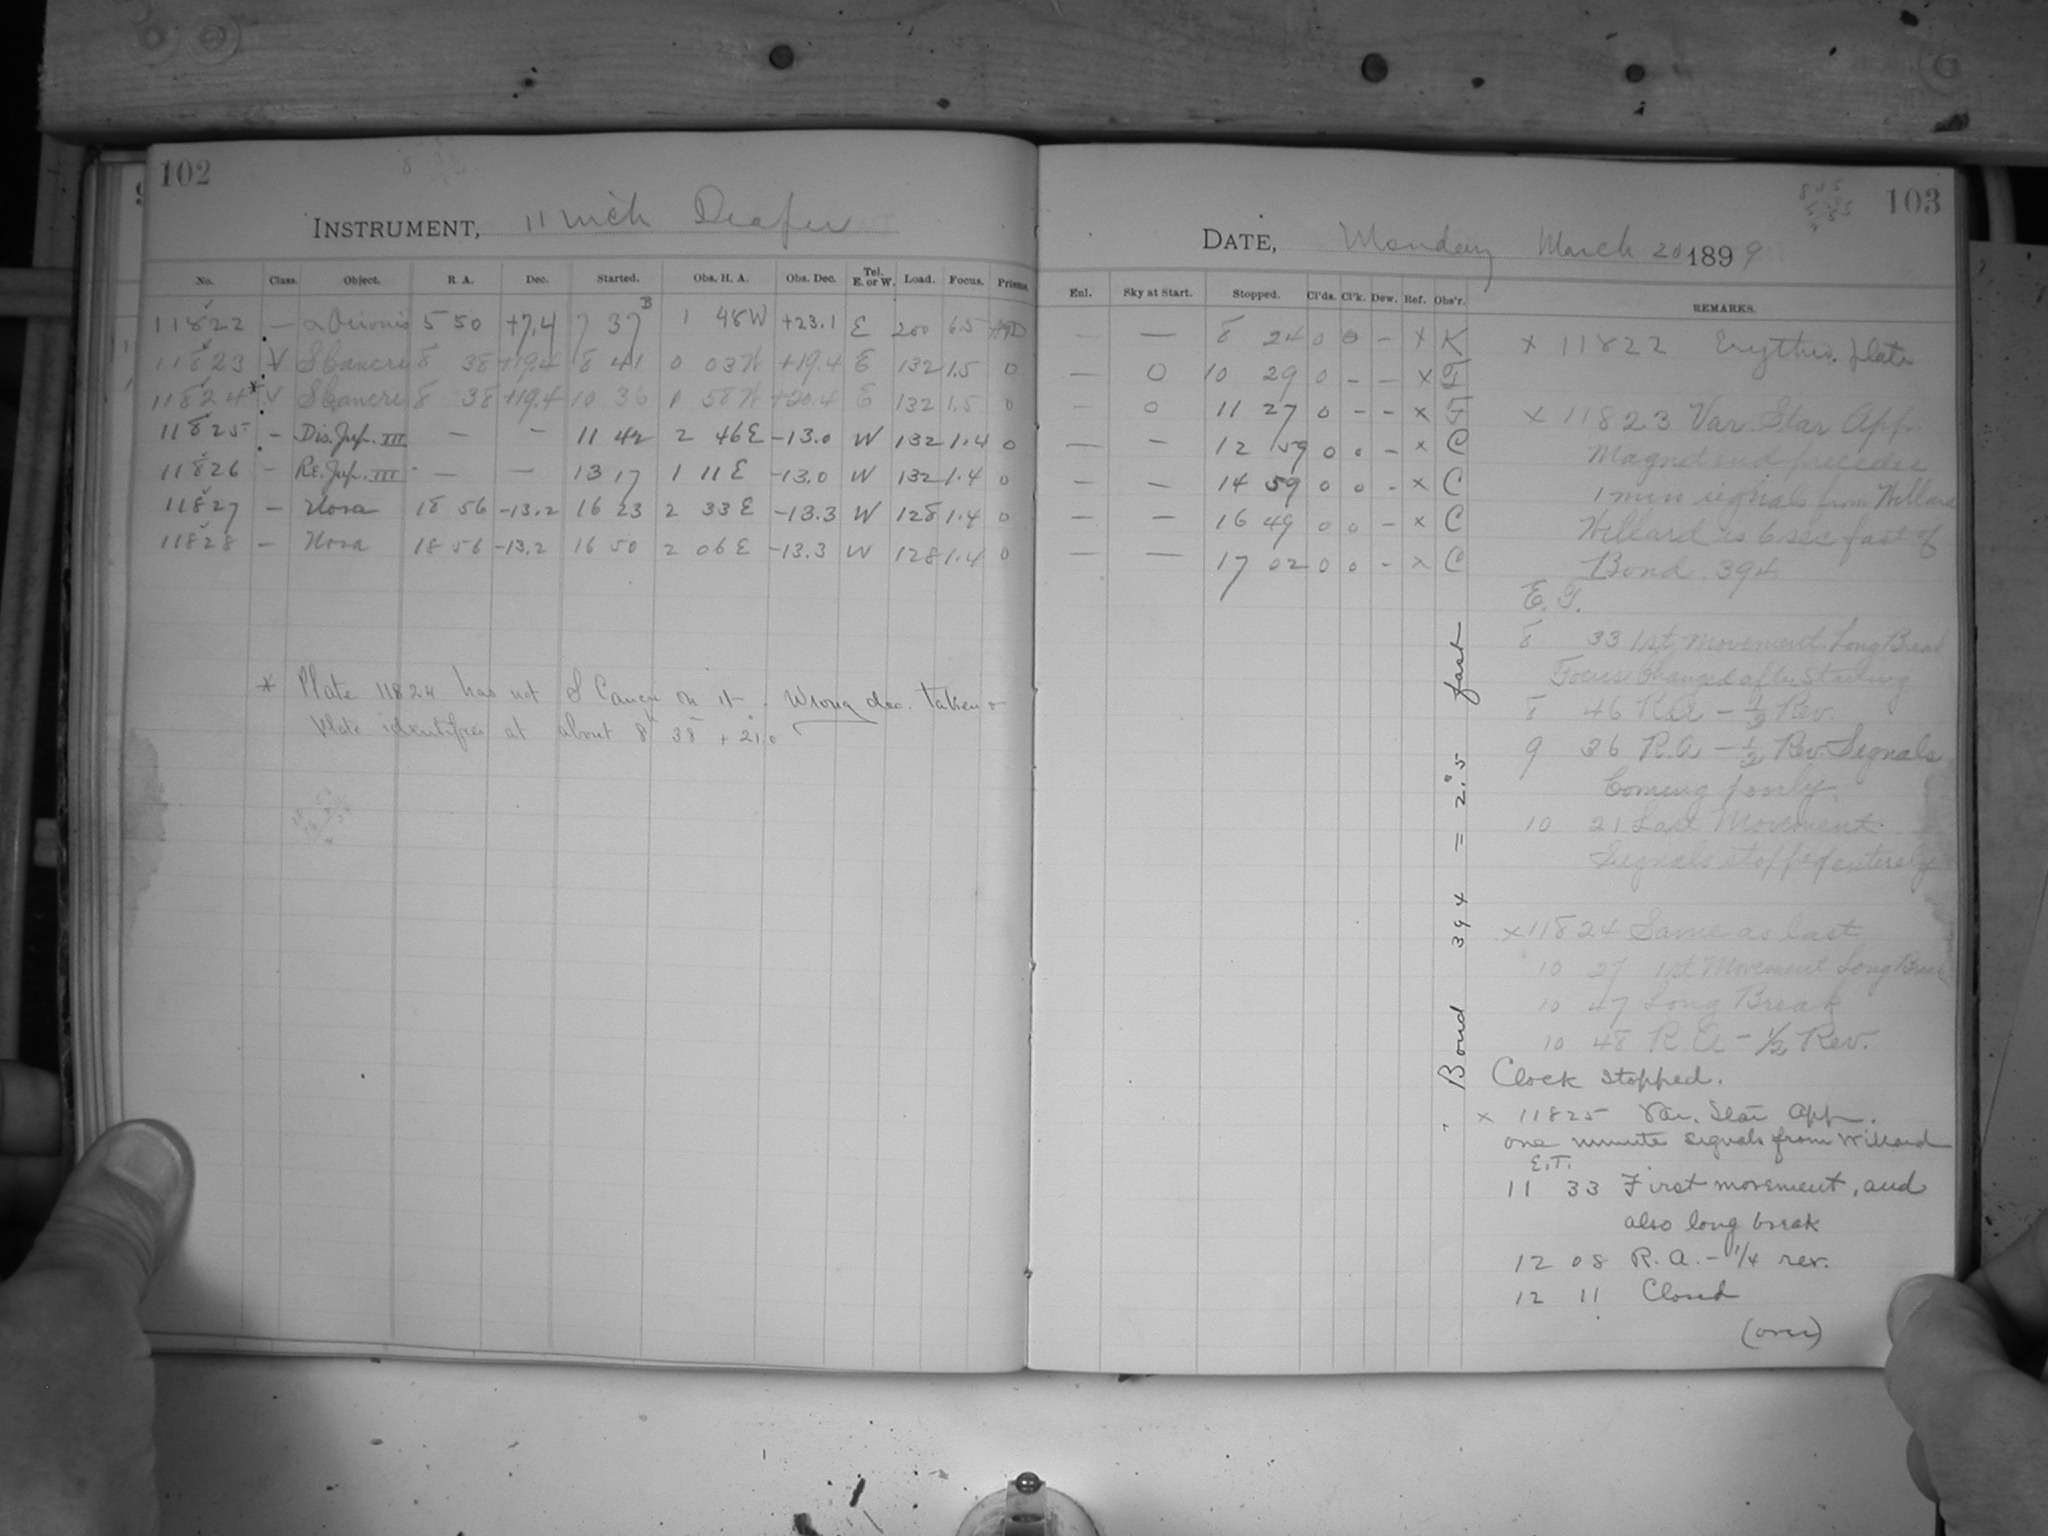 102
INSTRUMENT, 11 inch Draper
No. Class. Object. R. A. Dec. Started. Obs. H. A. Obs. Dec. Tel. E. or W. Load. Focus. Prisms.
11822 — α Orionis 5 50 +7.4 7 37 B 1 48 W +23.1 E 200 6.5
11823 V S Cancri 8 38 +19.4 8 41 0 03 W +19.4 E 132 1.5 0
11824 * V S Cancri 8 38 +19.4 10 36 1 58 W +20.4 E 132 1.5 0
11825 - Dis. Jup. III — - 11 42 2 46 E -13.0 W 132 1.4 0
11826 - Re. Jup. III — — 13 17 1 11 E -13.0 W 132 1.4 0
11827 - Nova 18 56 -13.2 16 23 2 33 E -13.3 W 128 1.4 0
11828 - Nova 18 56 -13.2 16 50 2 06 E -13.3 W 128 1.4 0
* Plate 11824 has not S Cancri on it. Wrong dec. taken
Plate identified at about 8h 38m + 21°.0
103
DATE, Monday March 20 1899
Enl. Sky at Start. Stopped. Cl'ds. Cl'k. Dew. Ref. Obs'r. REMARKS.
— — 8 24 0 0 - x K
— 0 10 29 0 - — x F
- 0 11 27 0 - - x F
— - 12 59 0 0 - x C
- - 14 59 0 0 - x C
- — 16 49 0 0 - x C
— — 17 02 0 0 - x C
Bond 394 = 2.s5 fast
x 11822 Erythro. plate
x 11823 Var. Star App.
Magnet end precedes
1 min signals from Willard
Willard is 6 sec fast of
Bond 394
E. T.
8 33 1st Movement Long Break
Focus Changed after Starting
8 46 R.A - 1/2 Rev.
9 36 R.A - 1/2 Rev. Signals
Coming poorly.
10 21 Last Movement
Signals stopped entirely
x 11824 Same as last
10 27 1st Movement Long Break
10 47 Long Break
10 48 R.A - 1/2 Rev.
Clock stopped.
x 11825 Var. Star App.
one minute signals from Willard
E.T.
11 33 First movement, and
also long break
12 08 R.A. - 1/4 rev.
12 11 Closed
(over)